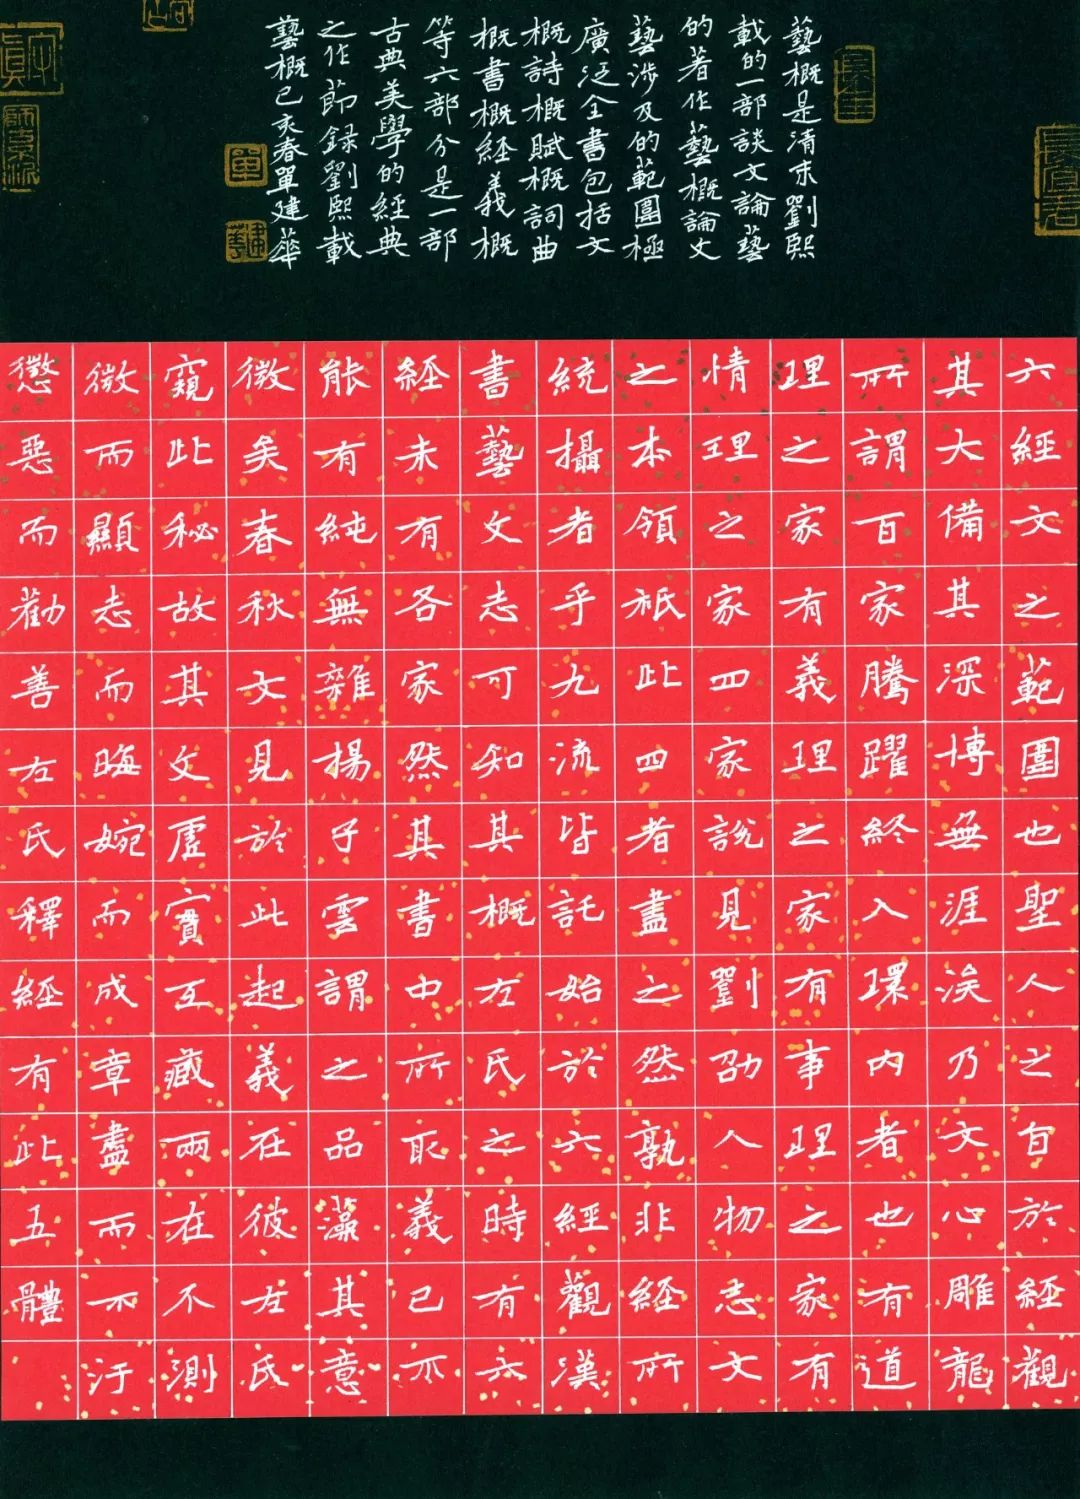 藝概是清末劉熙
載的一部談文論藝
的著作藝概論文
藝涉及的範圍極
廣泛全書包括文
概詩概賦概詞曲
概書概經義概
等六部分是一部
古典美學的經典
之作節録劉熙載
藝概己亥春單建華
單
建華
六經文之範圍也聖人之旨於經觀
其大備其深博無涯涘乃文心雕龍
所謂百家騰躍終入環內者也有道
理之家有義理之家有事理之家有
情理之家四家說見劉劭人物志文
之本領祇此四者盡之然孰非經所
統攝者乎九流皆託始於六經觀漢
書藝文志可知其概左氏之時有六
經未有各家然其書中所取義已不
能有純無雜揚子雲謂之品藻其意
微矣春秋文見於此起義在彼左氏
窺此秘故其文虛實互藏兩在不測
微而顯志而晦婉而成章盡而不汙
懲惡而勸善左氏釋經有此五體